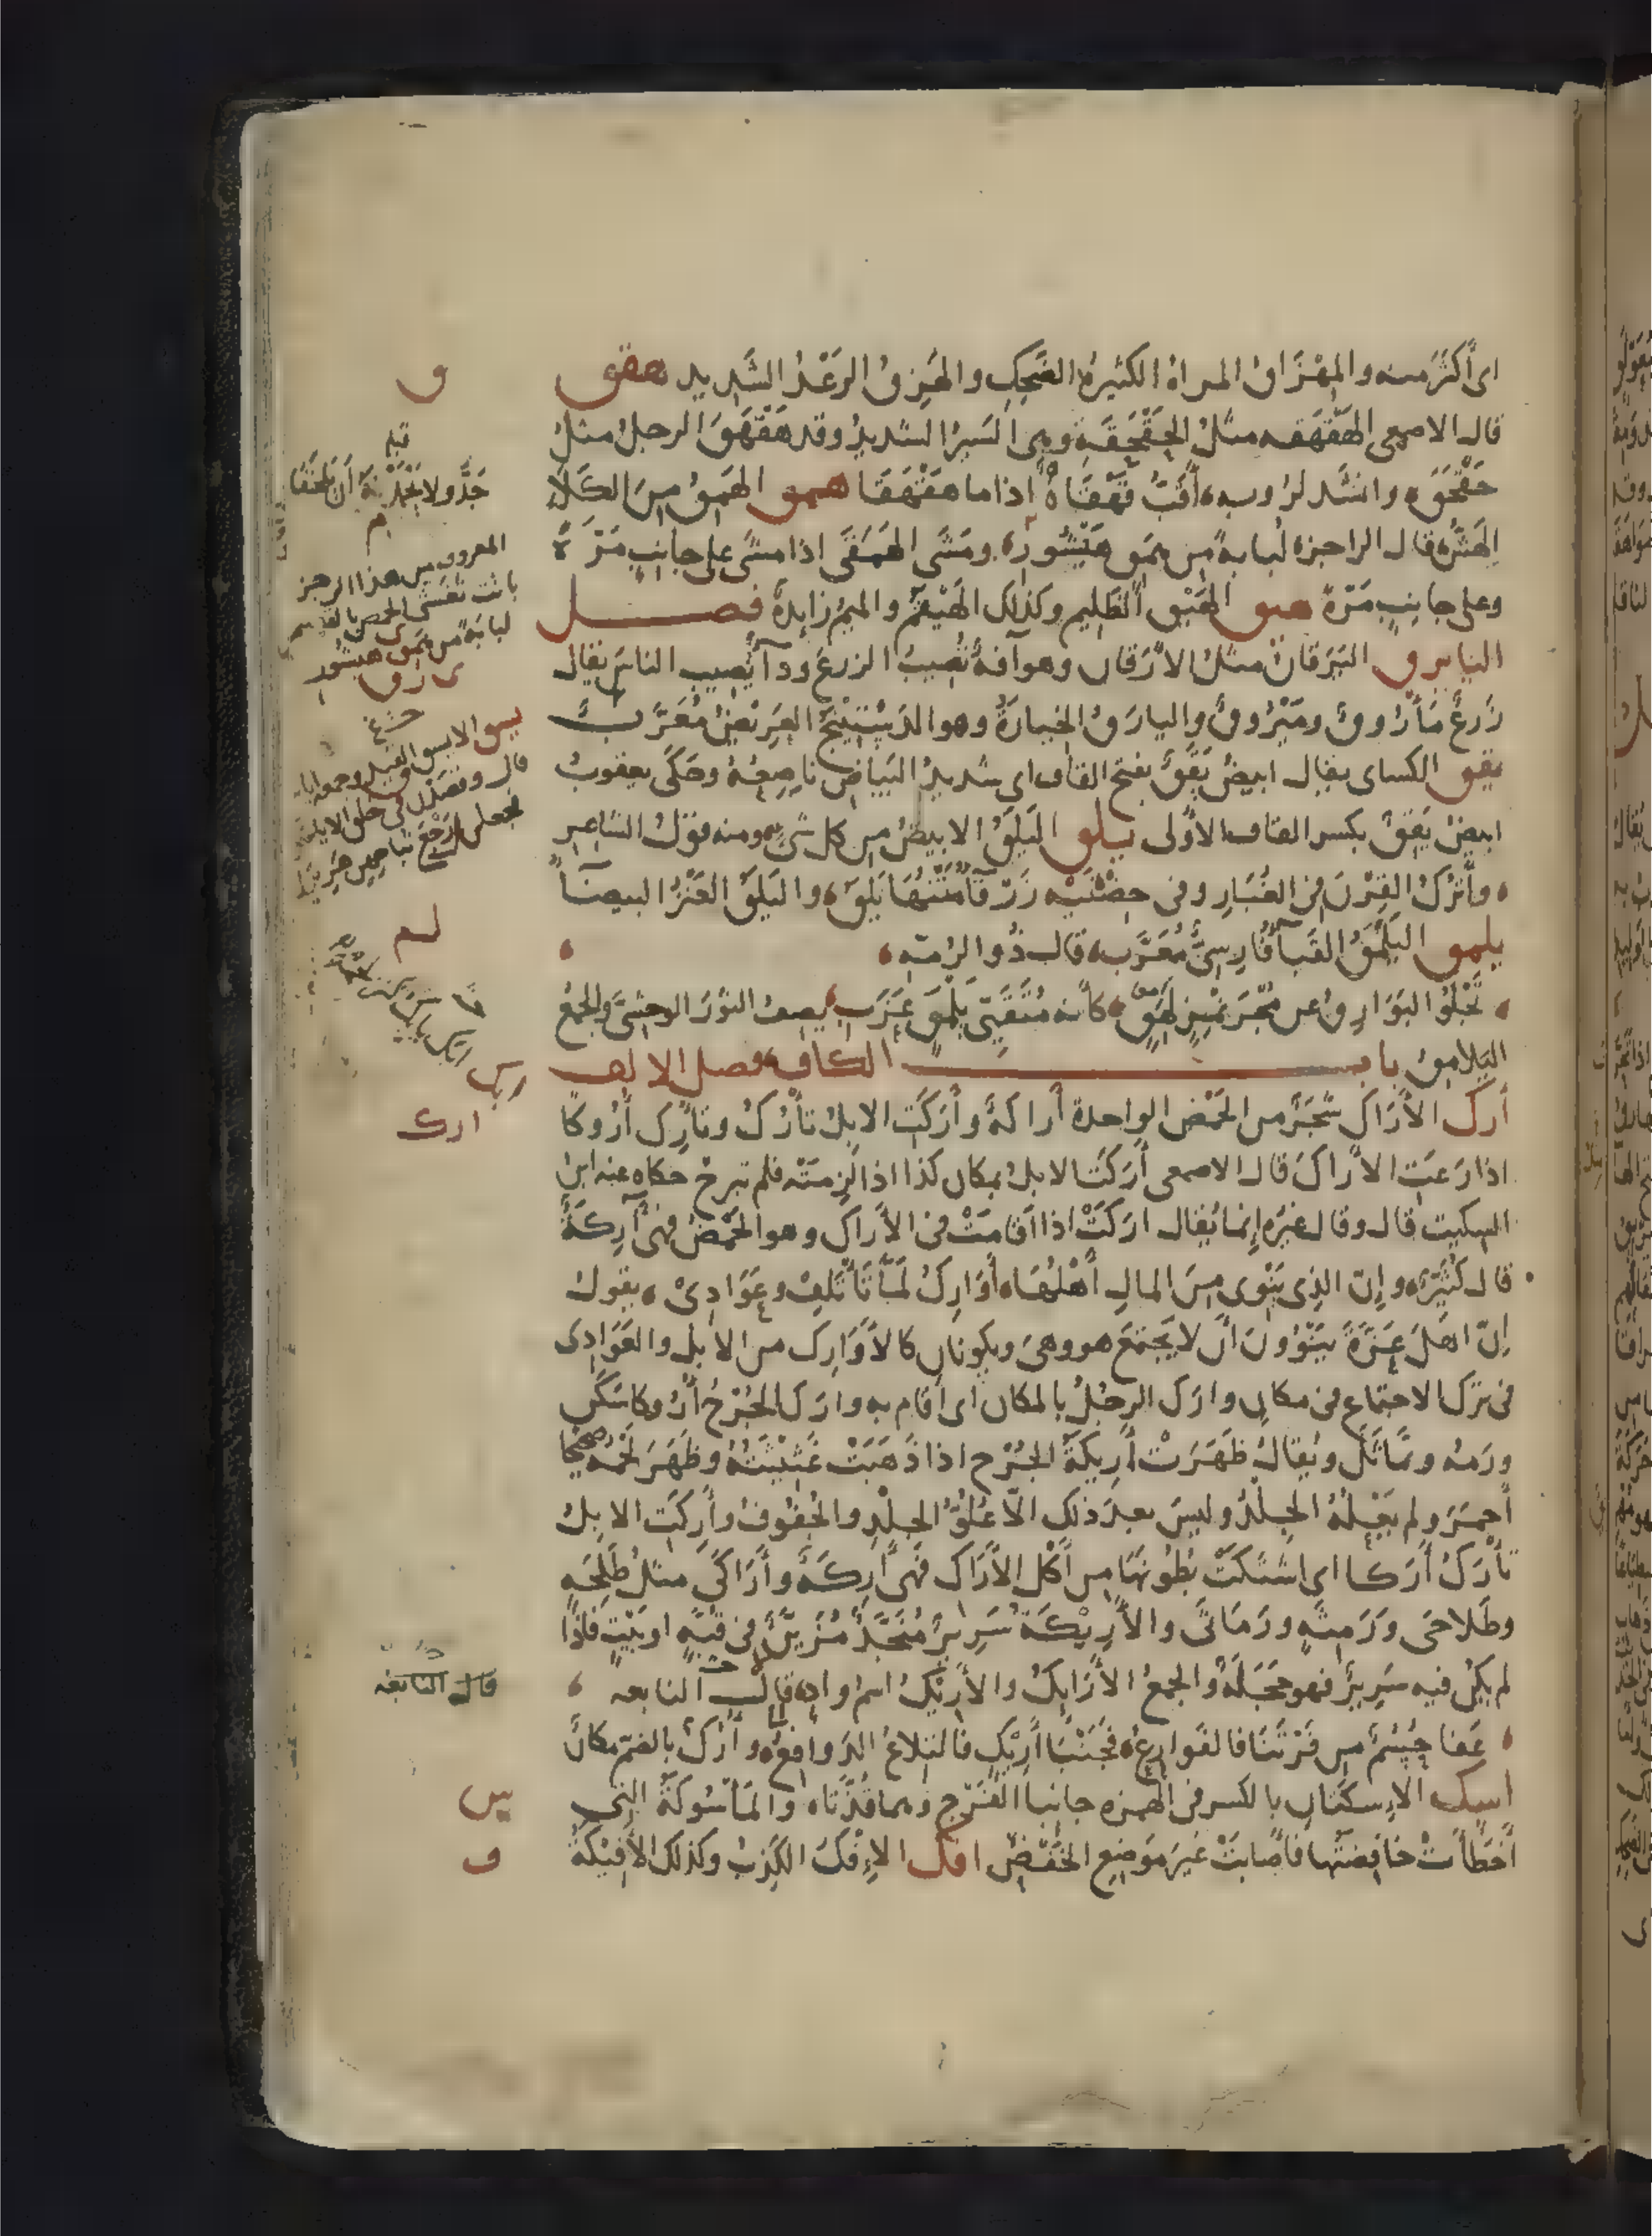 اى أَكثَرَ منه والمِهْزَاقُ المراة الكثيرةُ الضَّحِكِ والهَزِقُ الرَعْدُ الشَّديد هقق
قال الاصمعى الهَقْهَقه مثلُ الحَقْحَقَةِ وهى السَيْرُ الشديدُ وقد هَقْهَقَ الرجلُ مثلُ
حَقْحَقَ وانشد لرُوبه أَقَبُّ قَهْقَاهٌ اذا ما هَقْهَقَا همق الهَمِقُ مِنَ الكَلَأِ
الهَشُّ قال الراجز لُبايةً من هَمِقٍ هَيْشُورِ ومَشَى الهَمَقَى اذا مشَى على جانبٍ مَرَّةً
وعلى جانِبٍ مَرّةً هيق الهَيْق الظَلِيم وكذلك الهَيْقَمُ والميمُ زايدةٌ فصل
اليا يرق اليَرَقانُ مثلُ الأَرَقان وهو آفةٌ تُصِيبُ الزرعَ ودآ يُصيب الناسَ يقال
زَرعٌ مَأْرُوقٌ ومَيْرُوقٌ واليارَقُ الجبارَةُ وهو الدَسْتَبِيْنَجُ العَرِيْضُ مُعَرَّبٌ
يقق الكساى يقال ابيضُ يَقَقٌ بفتح القاف اى شديدُ البَيَاضِ ناصِعُهُ وحَكَى يعقوبُ
ابيضُ يَقِقٌ بكسر القاف الأولى يلق اليَلَقُ الابيضُ من كل شىٍ ومنه قولُ الشاعر
وأَتْرُكُ القِرْنَ فى الغُبَارِ وفى حِضْنَيْهِ زَرْقَآ مَتْنُهَا يَلَقُ واليَلَقُ العَنْزُ البيضآ
يلمق اليَلْمَقُ القَبآ فارِسىٌّ مُعَرَّب قال ذُو الرُمّه
تَجْلُو البَوَارِقُ عن مُجْرَنْمِزٍ لَهَقٍ كأنه مُتَقَبِّى يَلْمَقٍ عَزَبُ يصف الثَوْرَ الوحشىَّ والجمع
اليَلامقُ باب الكاف فصل الالف
أرك الأَرَاك شَجَرٌ من الحَمْض الواحدة أراكَةٌ وأَرَكَتِ الابلُ تأرُكُ وتأرِك أُرُوكًا
اذا رَعَتِ الأَراكَ قال الاصمعى أَرَكَتِ الابلُ بمكان كذا اذا لَزِمَتْه فلم تبرحْ حكاه عنه ابنُ
السكيت قال وقال غيرُه إنما يُقال اَرَكَتْ اذا اَقامَتْ فى الأَراكِ وهو الحَمْضُ فهىَ آرِكَةٌ
قال كُثَيّرٌ وإنّ الذى يَنْوِى مِنَ المالِ أَهْلُهَا أَوَارِكُ لَمَّا تَأْتَلِفْ وعَوَادِىْ يقول
إنّ اهلَ عَزّةَ يَنْوُونَ أَنْ لا يَجْتمِعَ هو وهىَ ويكونانِ كالأَوَارِكِ من الابل والعَوَادِى
فى ترك الاجتماع فى مكانٍ وارَكَ الرجُلُ بالمكان اى اقام به وارَكَ الجُرْحُ أُرُوكا سَكَن
ورَمُه وتَماثَلَ ويُقالُ ظَهَرَتْ أَرِيكَةُ الجُرْح اذا ذَهَبَتْ غَثِيْثَتُهُ وظَهَرَ لَحْمُه صَحِيْحًا
أحمَرَ ولم يَعْلُهُ الجِلْدُ وليس بعد ذلك الّا عُلُوُّ الجِلْدِ والجُفُوفُ وأَرِكَتِ الابلُ
تأْرَكُ أَرَكا اى اشتكَتْ بُطُونَها من أَكْلِ الأَراكِ فهى أَرِكَةٌ وأَرَاكَى مثلُ طَلِحَهٍ
وطَلاحَى ورَمِثَهٍ ورَمَاثَى والأَرِيْكَةُ سَرِيرٌ مُنَجَّدٌ مُزَيَّنٌ فى قُبّةٍ او بَيْتٍ فاذا
لم يكن فيه سَرِيرٌ فهو حَجَلَةٌ والجمعُ الأَرَايِكُ والأَرِيْكُ اسم وادٍ قال النابغه
عَفا حُسُمٌ من فَرْتَنَا فالفَوارِعُ فَجَنْبَا أَرِيْكٍ فالتِلاعُ الدَوافِعُ وأُرُكٌ بالضم مكانٌ
اسك الإسكَتانِ بالكسر فى الهمزه جانِبا الفَرْجِ وهما قُذّتاه والمَأْسُوكةُ التى
أَخطأَتْ خَافِضَتُها فأَصابَتْ غيرَ مَوضِعِ الخَفْضِ افك الإفْكُ الكَذِبُ وكذلك الأَفِيْكَةُ
ق
قبله
جَدَّ ولا يَحْمَدْنَهُ أن يَلْحَقَا
م
المعروف من هذا الرجز
باتت تعشى الحمض بالقصيم
لبايةً من هَمِقٍ هيشُورِ
يارق
قال
لم
ارك
ارك
قال النابغه
س
ف